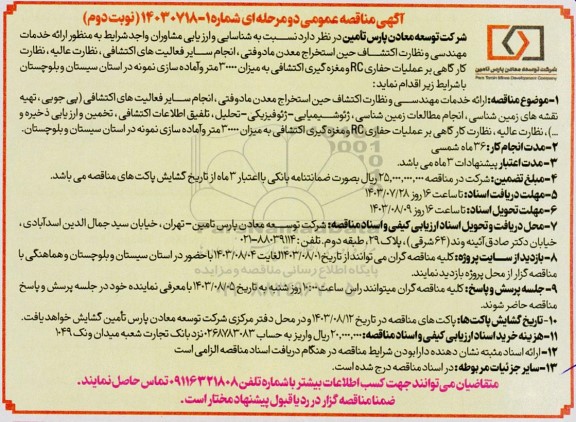 آگهی مناقصه عمومی دو مرحله ای شماره ۱-۱۴۰۳۰۷۱۸ (نوبت دوم)
شرکت توسعه معادن پارس تامین
Pars Tamin Mines Development Company
شرکت توسعه معادن پارس تامین در نظر دارد نسبت به شناسایی و ارزیابی مشاوران واجد شرایط به منظور ارائه خدمات
مهندسی و نظارت اکتشاف حین استخراج معدن مادوفتی، انجام سایر فعالیت های اکتشافی، نظارت عالیه، نظارت
کارگاهی بر عملیات حفاری RC و مغزه گیری اکتشافی به میزان ۳۰۰۰۰ متر و آماده سازی نمونه در استان سیستان و بلوچستان
با شرایط زیر اقدام نماید:
۱-موضوع مناقصه: ارائه خدمات مهندسی و نظارت اکتشاف حین استخراج معدن مادوفتی، انجام سایر فعالیت های اکتشافی (پی جویی، تهیه
نقشه های زمین شناسی، انجام مطالعات زمین شناسی، ژئوشیمیایی-ژئوفیزیکی-تحلیل، تلفیق اطلاعات اکتشافی، تخمین و ارزیابی ذخیره و
...)، نظارت عالیه، نظارت کارگاهی بر عملیات حفاری RC و مغزه گیری اکتشافی به میزان ۳۰۰۰۰ متر و آماده سازی نمونه در استان سیستان و بلوچستان.
۲-مدت انجام کار: ۳۶ ماه شمسی
۳-مدت اعتبار پیشنهادات ۳ ماه می باشد.
۴-مبلغ تضمین: شرکت در مناقصه ۲۵,۰۰۰,۰۰۰,۰۰۰ ریال بصورت ضمانتنامه بانکی با اعتبار ۳ ماه از تاریخ گشایش پاکت های مناقصه می باشد.
۵-مهلت دریافت اسناد: تا ساعت ۱۶ روز ۱۴۰۳/۰۷/۲۸
۶-مهلت تحویل اسناد: تا ساعت ۱۶ روز ۱۴۰۳/۰۸/۰۹
۷-محل دریافت و تحویل اسناد ارزیابی کیفی و اسناد مناقصه: شرکت توسعه معادن پارس تامین-تهران، خیابان سید جمال الدین اسدآبادی،
خیابان دکتر صادق آئینه وند (۶۴ شرقی)، پلاک ۲۹، طبقه دوم. تلفن: ۸۸۰۳۹۱۱۴-۰۲۱
۸-بازدید از سایت پروژه: کلیه مناقصه گران می توانند از تاریخ ۱۴۰۳/۰۸/۰۱ لغایت ۱۴۰۳/۰۸/۰۴ با حضور در استان سیستان و بلوچستان و هماهنگی با
مناقصه گزار از محل پروژه بازدید نمایند.
۹-جلسه پرسش و پاسخ: کلیه مناقصه گران میتوانند راس ساعت ۱۰:۰۰ روز شنبه به تاریخ ۱۴۰۳/۰۸/۰۵ با معرفی نماینده خود در جلسه پرسش و پاسخ
مناقصه حاضر شوند.
۱۰-تاریخ گشایش پاکت ها: پاکت های مناقصه در تاریخ ۱۴۰۳/۰۸/۱۲ و در محل دفتر مرکزی شرکت توسعه معادن پارس تأمین گشایش خواهد یافت.
۱۱-هزینه خرید اسناد ارزیابی کیفی و اسناد مناقصه: ۲۰,۰۰۰,۰۰۰ ریال واریز به حساب ۰۲۶۸۷۸۳۰۸۳ نزد بانک تجارت شعبه میدان ونک ۱۰۴۹
۱۲-ارائه اسناد مثبته نشان دهنده دارا بودن شرایط مناقصه در هنگام دریافت اسناد مناقصه الزامی است
۱۳-سایر جزئیات مربوطه: در اسناد مناقصه درج شده است.
متقاضیان می توانند جهت کسب اطلاعات بیشتر با شماره تلفن ۰۹۱۱۶۳۲۱۸۰۸ تماس حاصل نمایند.
ضمنا مناقصه گزار در رد یا قبول پیشنهاد مختار است.